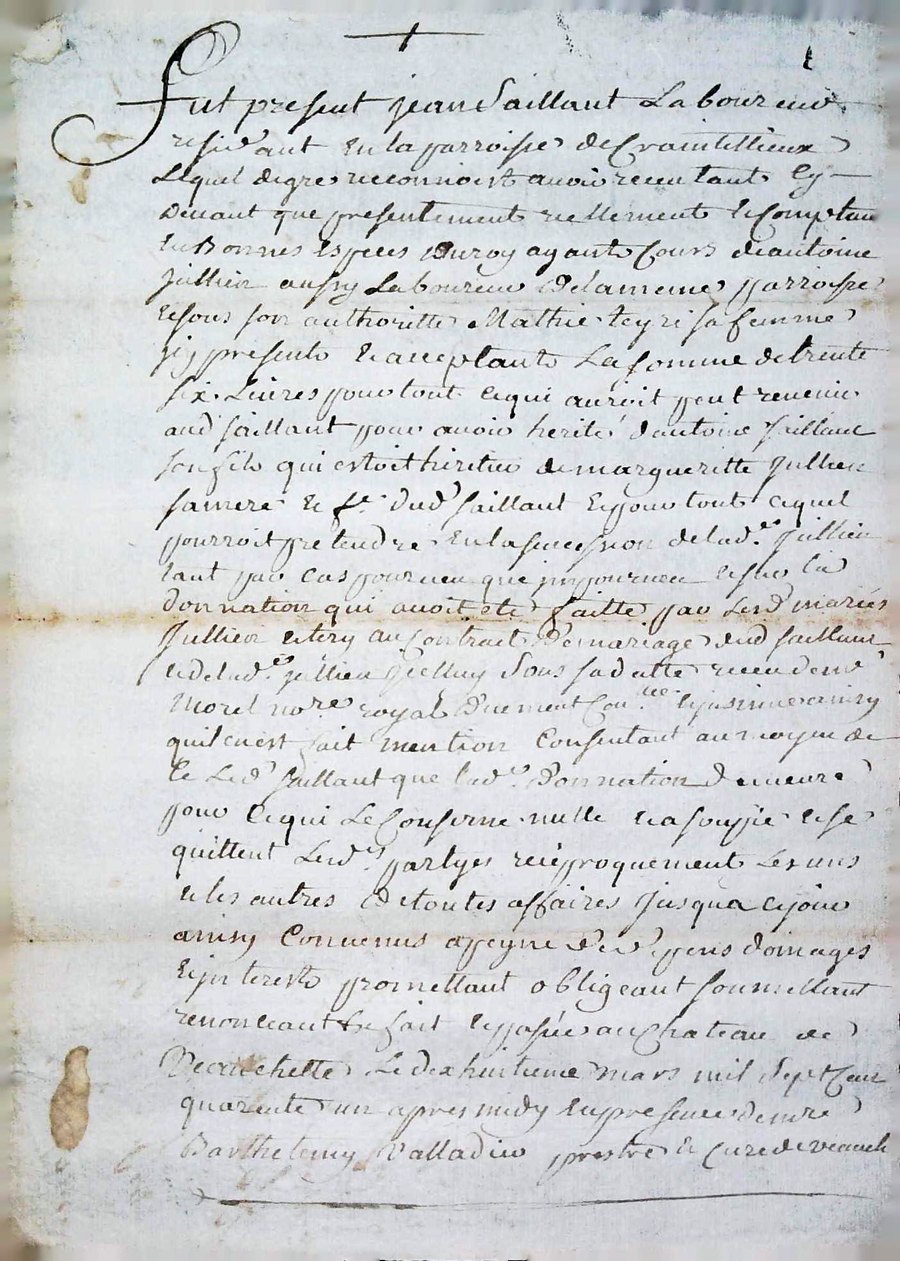 Fut present jean Saillant Laboureur
resid.ant en la parroisse de Craintillieux
Lequel de gre reconnoist avoir receu tant cy
devant que presentement reellement et comptan
en Bonnes Especes du roy ayant Cours de antoine
Jullien aussy Laboureur de la meme parroisse
et sous son authoritte Mathie teyri sa femme
jcy presents et acceptants La somme de trente
six Livres pour tout ce qui auroit peut revenir
aud saillant pour avoir herité d'antoine saillant
son fils qui estoit heritier de margueritte Jullien
sa mere et f.e dud saillant et pour tout ce quil
pourroit pretendre en la succession de lad.te Jullien
tant par cas pourveu que jnpourveu et sur la
donnation qui avoit eté faitte par Lesd mariés
Jullien et tery au Contrait de mariage dud saillant
et de lad.te jullien jcelluy sous sa datte receu de m.e
Morel no.re royal duement Con.llé et jnsinué ainsy
quil en est fait mention Consentant au moyen de
ce Led saillant que lad.e donnation demeure
pour ce qui Le Conserne nulle et assoupie et se
quittent Lesd partyes reciproquement Les uns
et les autres de toutes affaires Jusqua ce jour
ainsy Convenus a peyne de d pens domages
et jnterests promettant obligeant soumettant
renonceant &c fait et passé au Chateau de
Veauchette Le dixhuitieme mars mil sept Cent
quarente un apres midy en presence de m.re
Barthelemy Valladier prestre et Curé de veauch